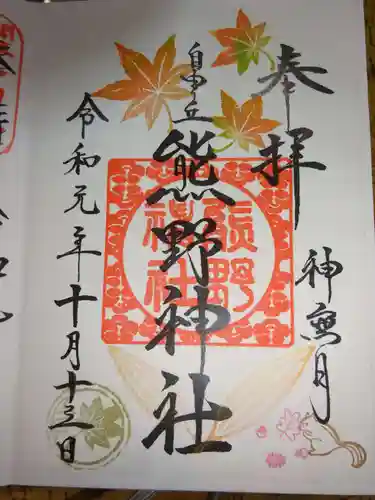 奉拝
神無月
自由が丘
熊野神社
熊野神社
令和元年十月十三日